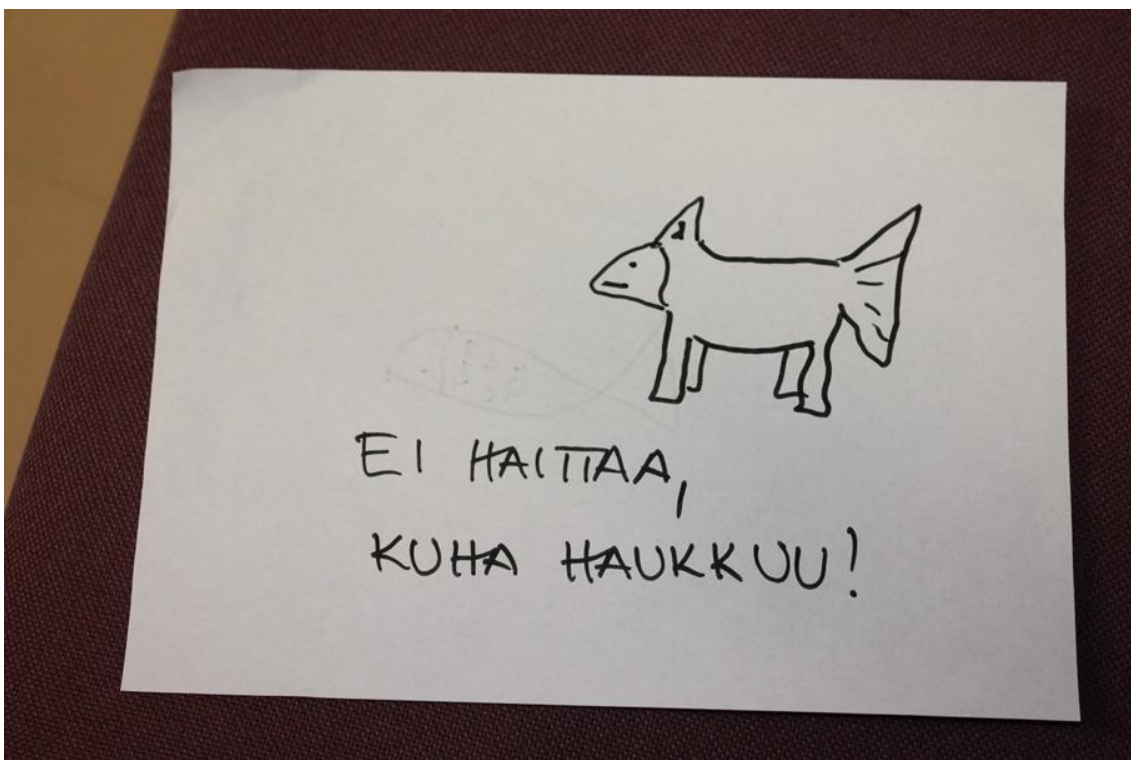 EI HAITTAA,
KUHA HAUKKUU!